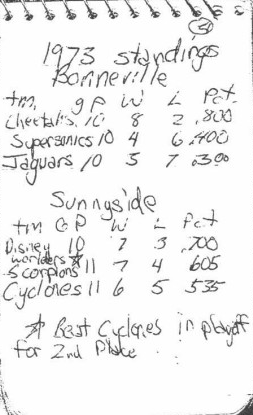 4
1973 standings
Bonneville
tm. GP W L Pct.
Cheetahs 10 8 2 .800
Supersonics 10 4 6 .400
Jaguars 10 5 7 .300
Sunnyside
tm GP W L Pct
Disney 10 7 3 .700
worlders ☆
Scorpions 11 7 4 605
Cyclones 11 6 5 535
☆ Beat Cyclones in playoff
for 2nd Place